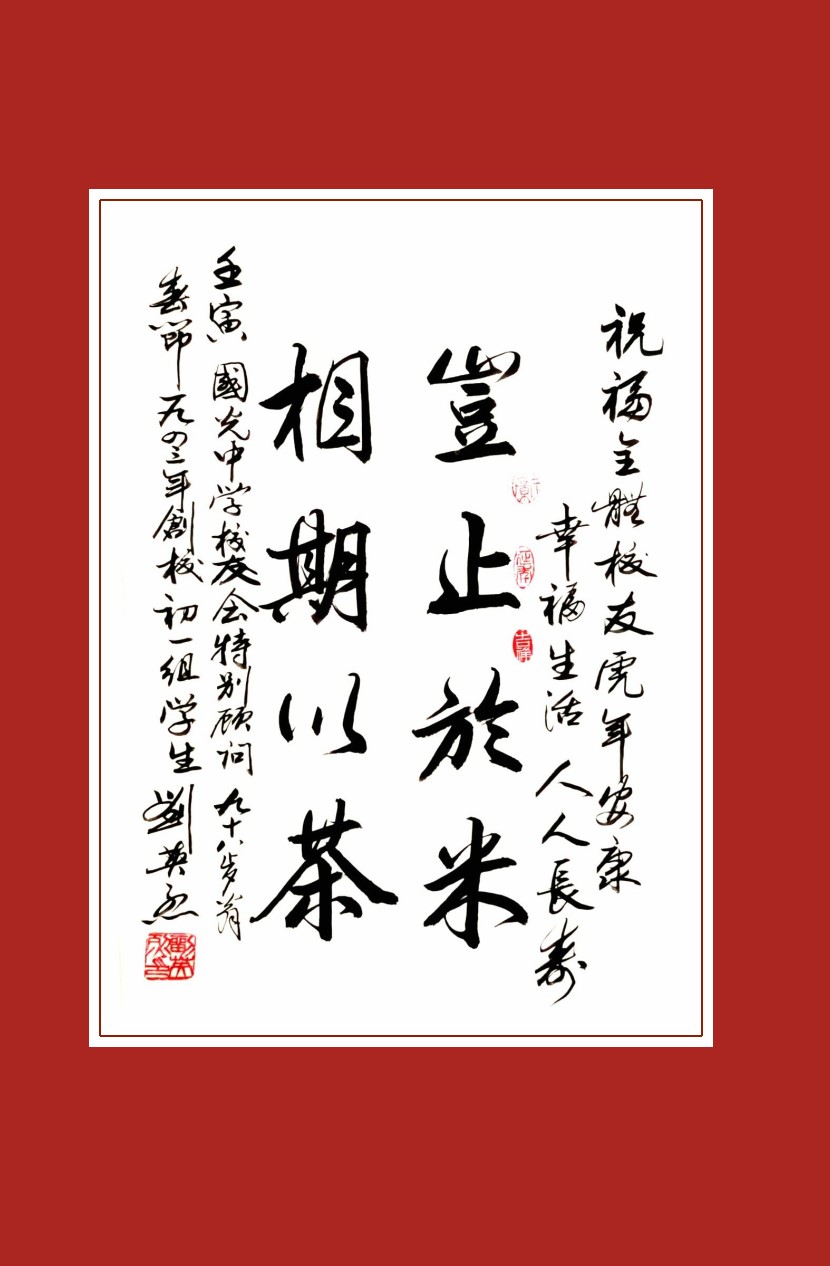 祝福全體校友虎年安康
幸福生活人人長壽
豈止於米
相期以茶
壬寅 國光中学校友会特别顾问 九十八岁翁
春節 一九四三年創校初一组学生 劉英烈
吉祥